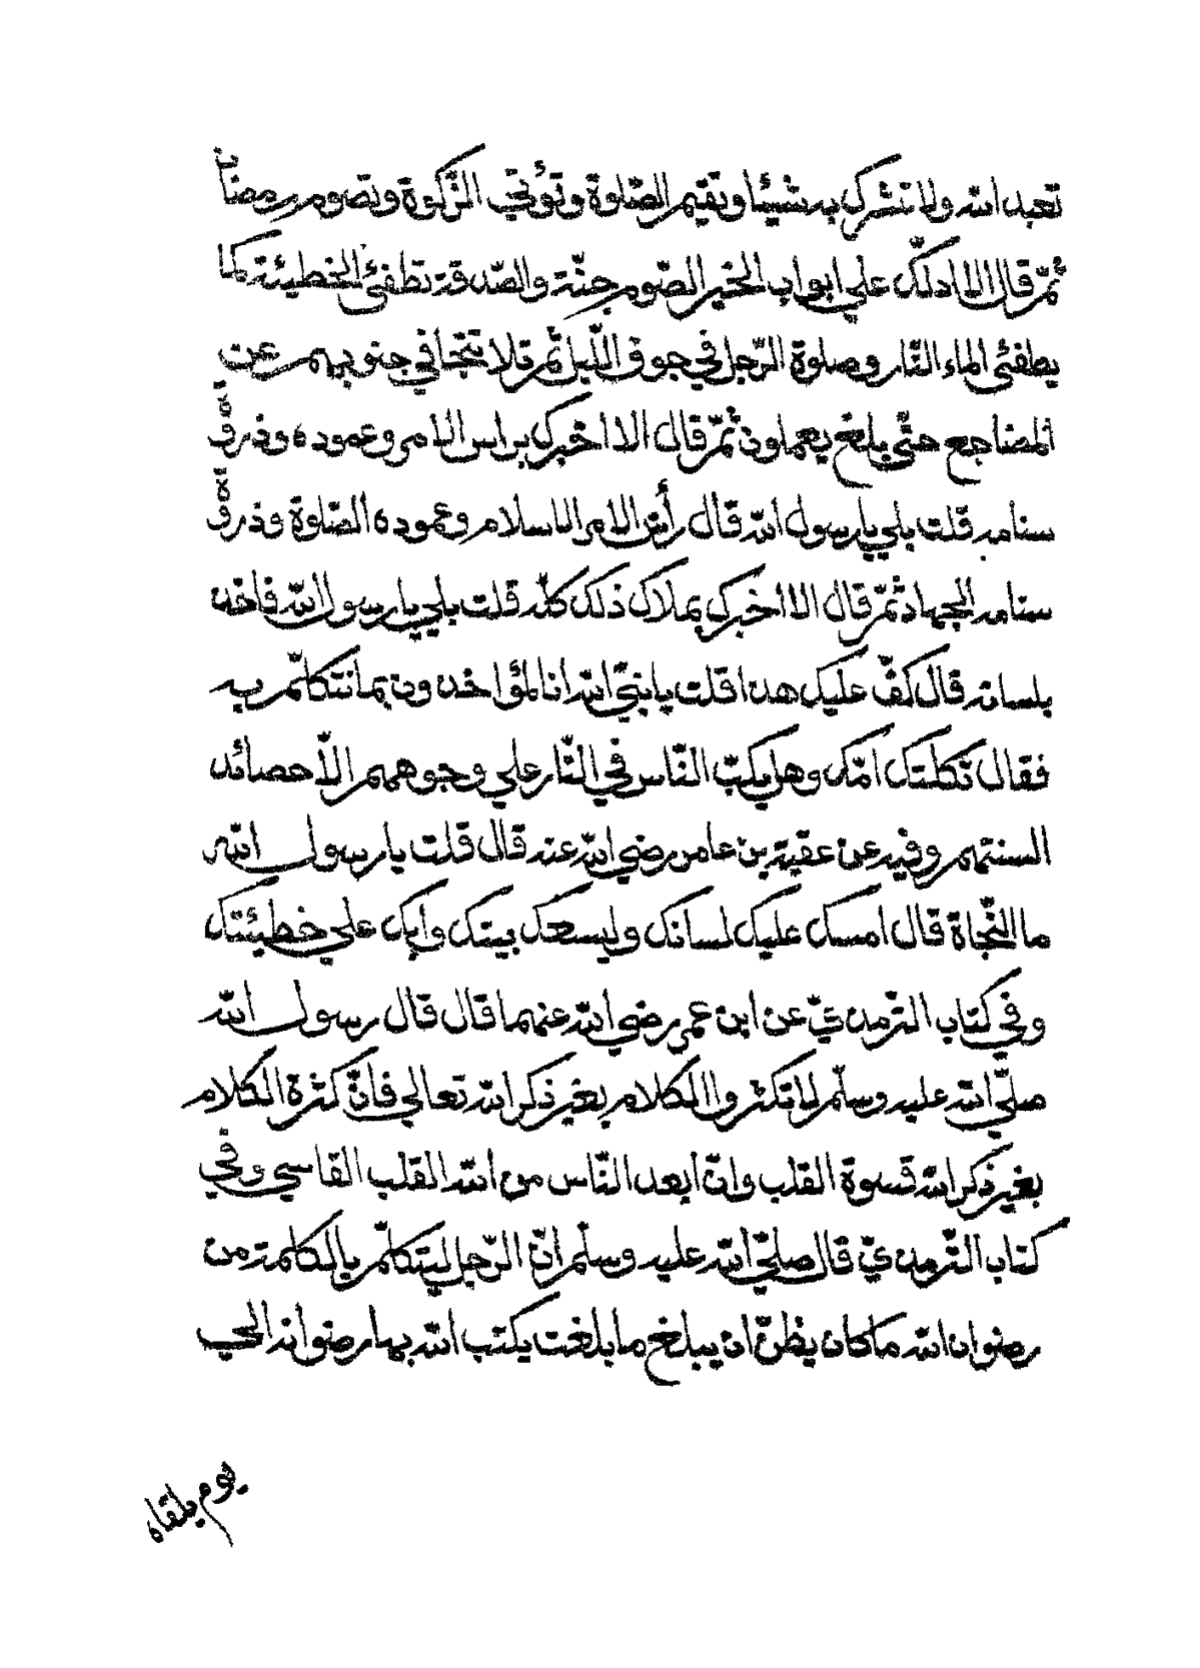 تعبد الله ولا تشرك به شيئا وتقيم الصّلوة وتؤتي الزّكوة وتصوم رمضان
ثمّ قال الا ادلّك علي ابواب الخير الصّوم جنّة والصّدقة تطفئ الخطيئة كما
يطفئ الماء النّار وصلوة الرّجل في جوف اللّيل ثمّ تلا تتجافي جنوبهم عن
المضاجع حتّي بلغ يعملون ثمّ قال الا اخبرك براس الامر وعموده وذروة
سنامه قلت بلي يا رسول الله قال رأس الامر الاسلام وعموده الصّلوة وذروة
سنامه الجهاد ثمّ قال الا اخبرك بملاك ذلك كلّه قلت بلي يا رسول الله فاخذ
بلسانه قال كفّ عليك هذا قلت يا نبيّ الله انا لمؤاخذون بما نتكلّم به
فقال ثكلتك امّك وهل يكبّ النّاس في النّار علي وجوههم الاّ حصائد
السنتهم وفيه عن عقبة بن عامر رضي الله عنه قال قلت يا رسول الله
ما النّجاة قال امسك عليك لسانك وليسعك بيتك وابك علي خطيئتك
وفي كتاب الترمذيّ عن ابن عمر رضي الله عنهما قال قال رسول الله
صلّي الله عليه وسلّم لا تكثروا الكلام بغير ذكر الله تعالي فانّ كثرة الكلام
بغير ذكر الله قسوة القلب وانّ ابعد النّاس من الله القلب القاسي وفي
كتاب التّرمذيّ قال صلّي الله عليه وسلّم انّ الرّجل ليتكلّم بالكلمة من
رضوان الله ما كان يظنّ ان يبلغ ما بلغت يكتب الله بها رضوانه الي
يوم يلقاه